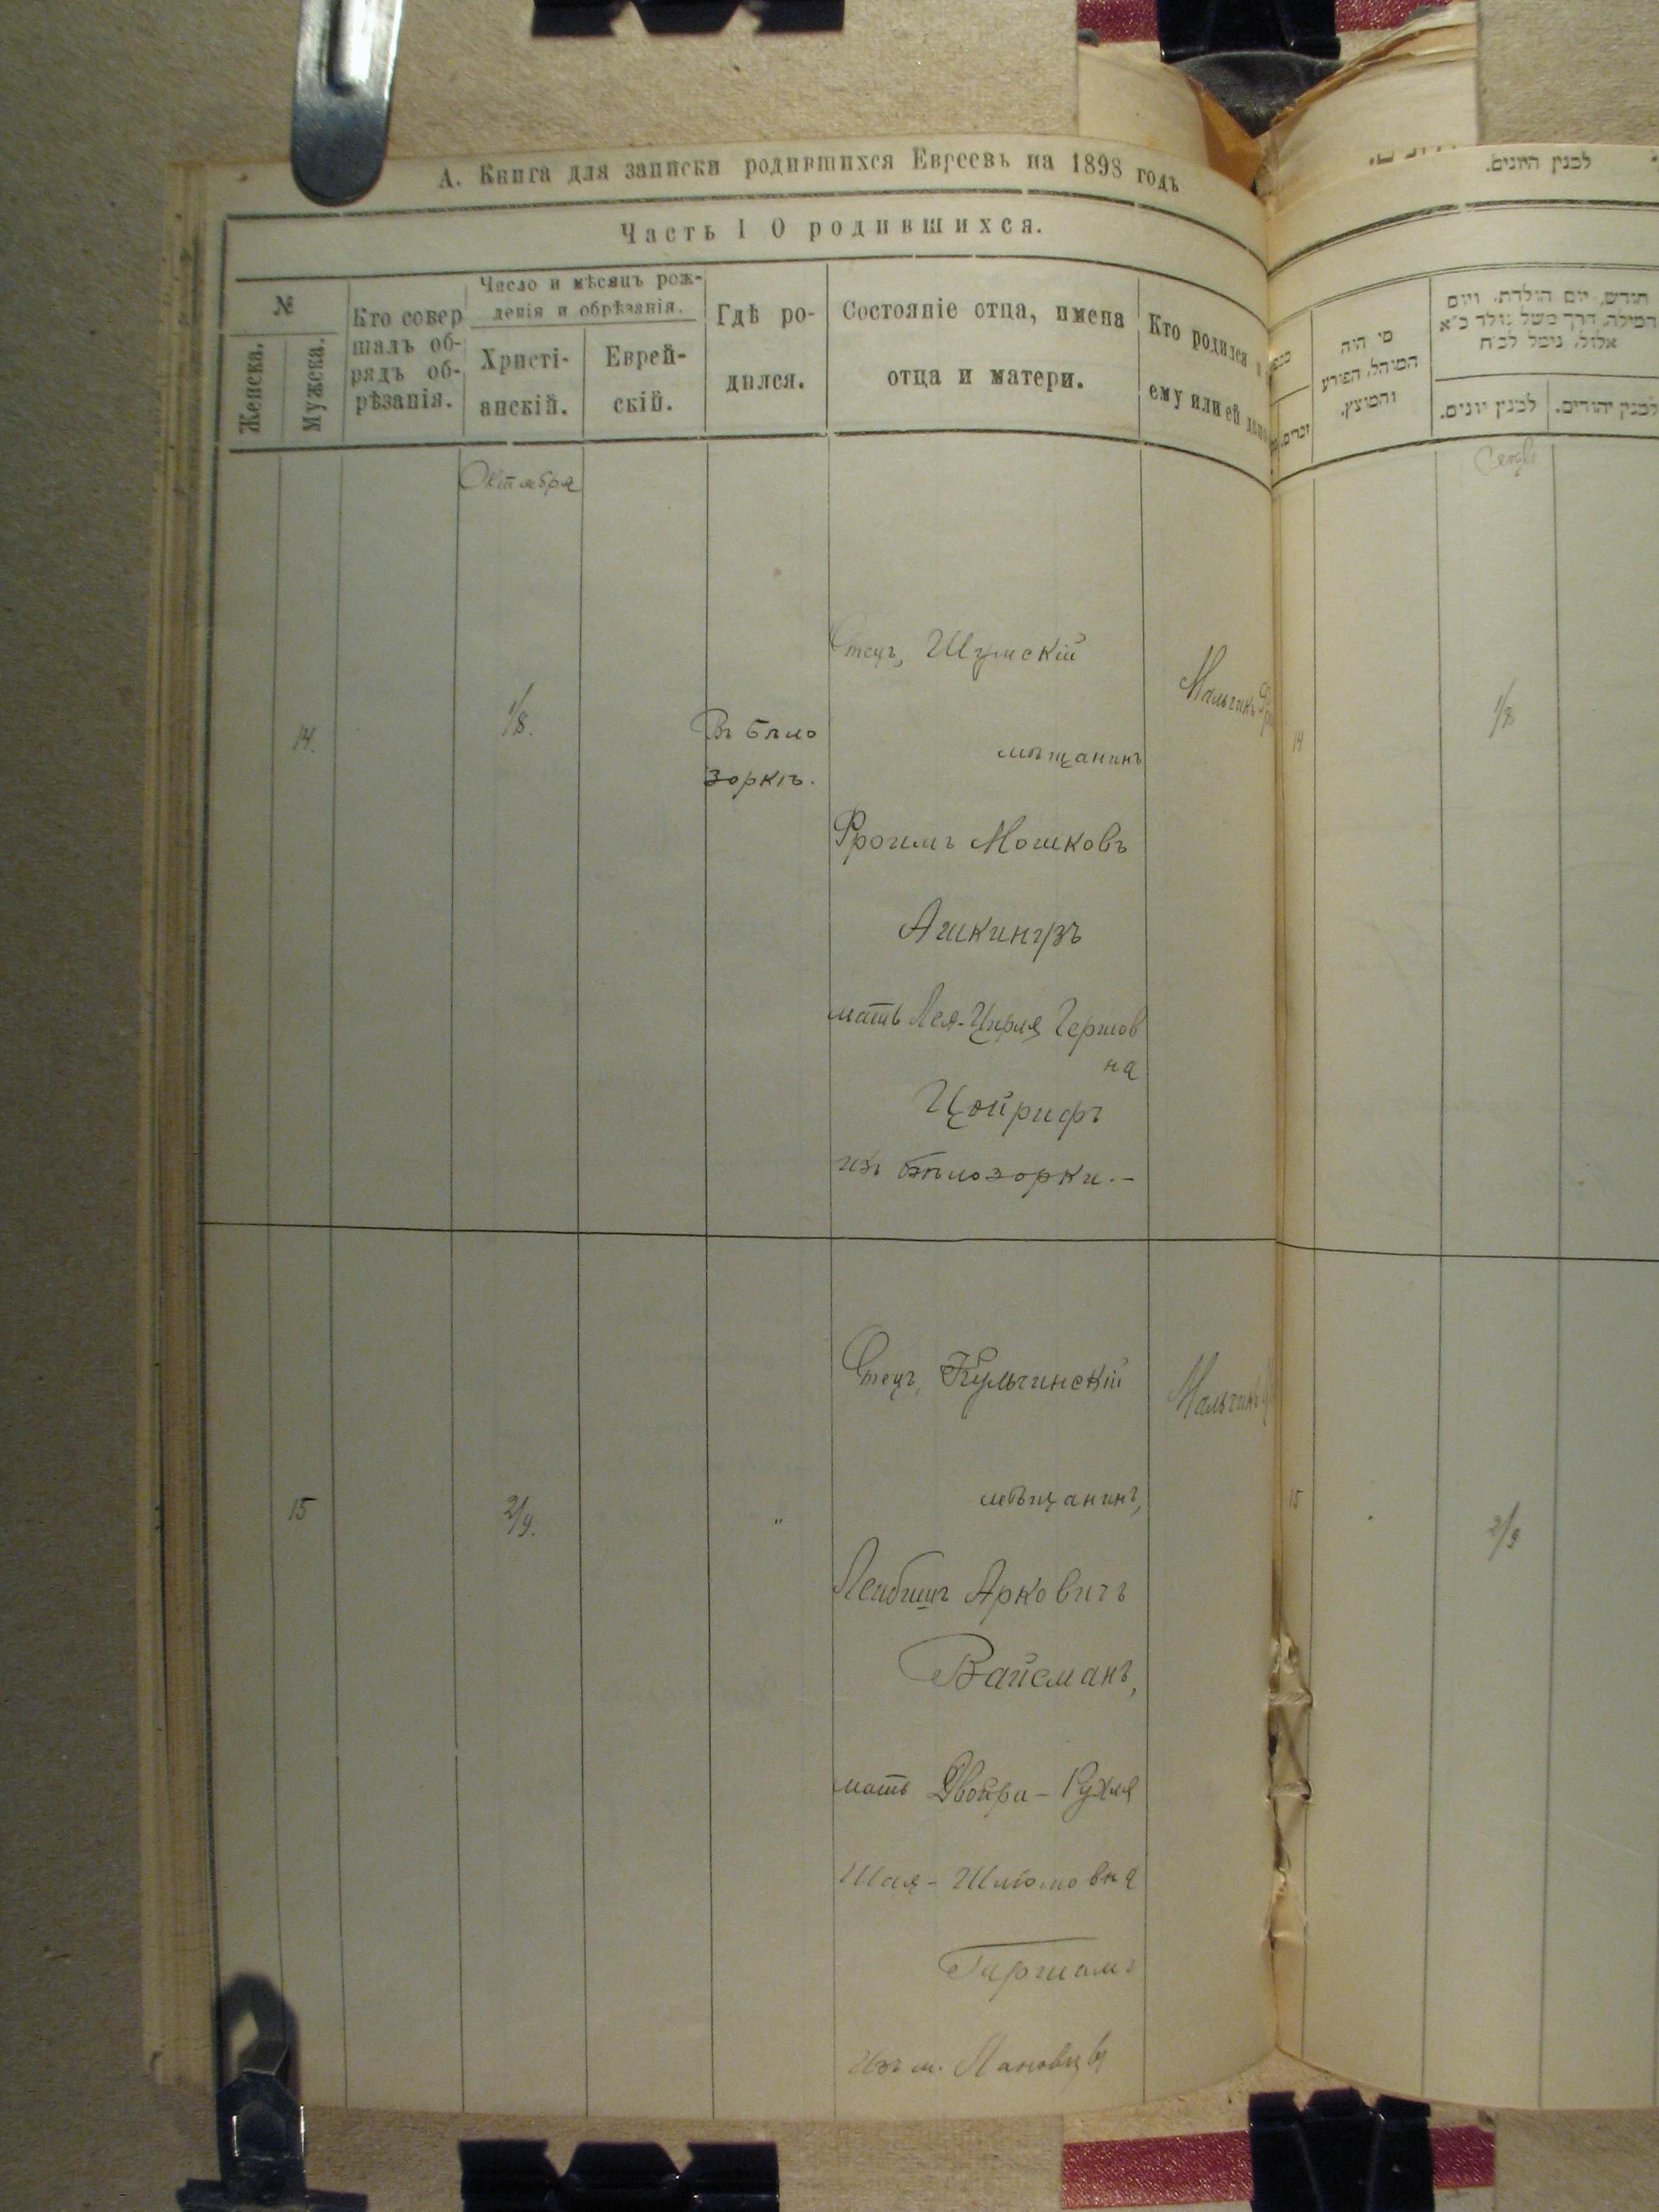 А. Книга для записки родившихся Евреевъ на 1898 годъ
Часть I О родившихся.
№
Женска.
Мужска.
Кто совер
шалъ об-
рядъ об-
рѣзанія.
Число и мѣсяцъ рож-
денія и обрѣзанія.
Христі-
анскій.
Еврей-
скій.
Гдѣ ро-
дился.
Состояніе отца, имена
отца и матери.
Кто родился и
ему или ей
Октября
14.
1/8.
Въ Бѣло
зоркѣ.
Отецъ, Шумскій
мѣщанинъ
Фроимъ Мошковъ
Ашкинузъ
мать Лея-Цирля Гершов
на
Цойрифъ
изъ Бѣлозорки.-
Мальчикъ
15
2/9.
"
Отецъ, Кульчинскій
мѣщанинъ,
Лейбишъ Арковичъ
Вайсманъ,
мать Двойра-Рухля
Шая-Шліомовна
Изъ м.
Мальчикъ
לבנין היונים.
מי היה
המוהל, הפורע
והמוצץ.
חודש, יום הולדת, ויום
המילה, דרך משל נולד כ״א
אלול, נימל לכ״ח
לבנין יונים.
לבנין יהודים.
זכרים.
14
1/8
15
2/9